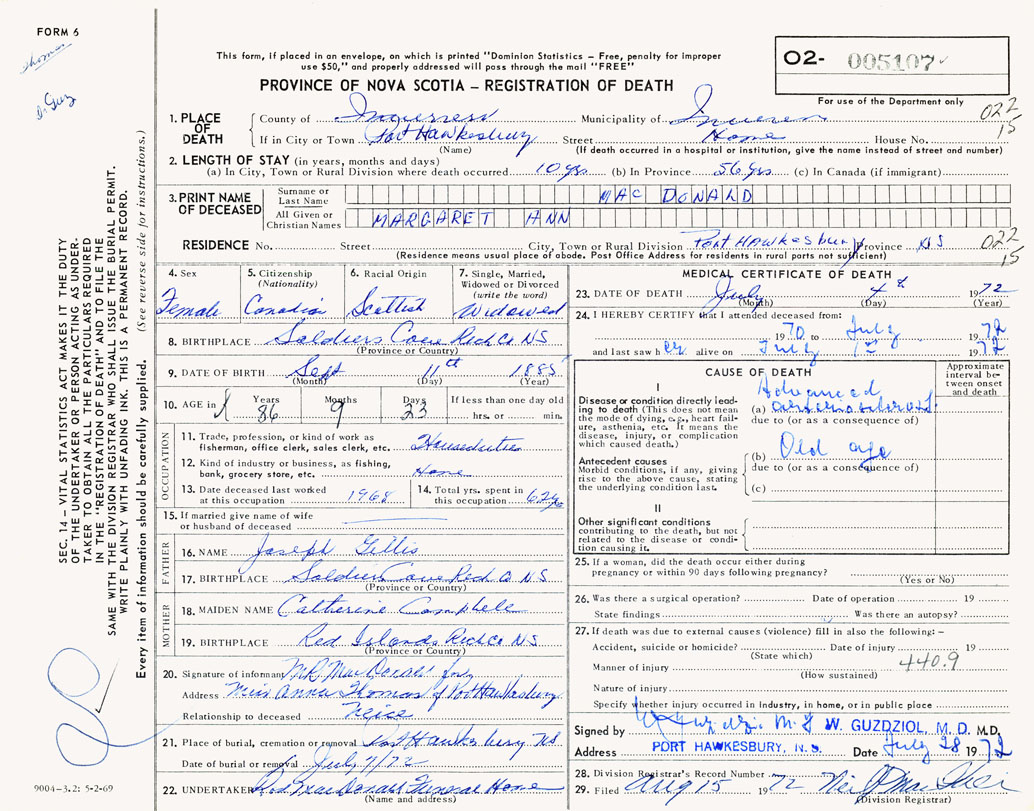 FORM 6
Thomas
Dr Guz
This form, if placed in an envelope, on which is printed "Dominion Statistics – Free, penalty for improper
use $50," and properly addressed will pass through the mail "FREE"
PROVINCE OF NOVA SCOTIA – REGISTRATION OF DEATH
02- 005107
For use of the Department only
022
15
1. PLACE OF DEATH
County of Inverness Municipality of Inverness
If in City or Town Port Hawkesbury Street Home House No.
(Name) (If death occurred in a hospital or institution, give the name instead of street and number)
2. LENGTH OF STAY (in years, months and days)
(a) In City, Town or Rural Division where death occurred 10 yrs (b) In Province 56 yrs (c) In Canada (if immigrant)
3. PRINT NAME OF DECEASED
Surname or Last Name MAC DONALD
All Given or Christian Names MARGARET ANN
RESIDENCE No. Street City, Town or Rural Division Port Hawkesbury Province NS
(Residence means usual place of abode. Post Office Address for residents in rural parts not sufficient)
022
15
4. Sex Female
5. Citizenship (Nationality) Canadian
6. Racial Origin Scottish
7. Single, Married, Widowed or Divorced (write the word) Widowed
8. BIRTHPLACE Soldiers Cove Rich Co NS
(Province or Country)
9. DATE OF BIRTH Sept 11th 1885
(Month) (Day) (Year)
10. AGE in Years 86 Months 9 Days 23 If less than one day old hrs. or min.
OCCUPATION
11. Trade, profession, or kind of work as fisherman, office clerk, sales clerk, etc. Houseduties
12. Kind of industry or business, as fishing, bank, grocery store, etc. Home
13. Date deceased last worked at this occupation 1968
14. Total yrs. spent in this occupation 62 yrs
15. If married give name of wife or husband of deceased
FATHER
16. NAME Joseph Gillis
17. BIRTHPLACE Soldiers Cove Rich Co NS
(Province or Country)
MOTHER
18. MAIDEN NAME Catherine Campbell
19. BIRTHPLACE Red Islands Rich Co NS
(Province or Country)
20. Signature of informant MR MacDonald for
Address Miss Anna Thomas of Port Hawkesbury
Relationship to deceased Neice
21. Place of burial, cremation or removal Port Hawkesbury NS
Date of burial or removal July 7/72
22. UNDERTAKER Rod MacDonald Funeral Home
(Name and address)
MEDICAL CERTIFICATE OF DEATH
23. DATE OF DEATH July 4th 1972
(Month) (Day) (Year)
24. I HEREBY CERTIFY that I attended deceased from:
1970 to July 1972
and last saw her alive on July 1st 1972
CAUSE OF DEATH
Approximate interval between onset and death
I
Disease or condition directly leading to death (This does not mean the mode of dying, e.g., heart failure, asthenia, etc. It means the disease, injury, or complication which caused death.)
Advanced
(a) arteriosclerosis
due to (or as a consequence of)
Antecedent causes
Morbid conditions, if any, giving rise to the above cause, stating the underlying condition last.
(b) Old age
due to (or as a consequence of)
(c)
II
Other significant conditions
contributing to the death, but not related to the disease or condition causing it.
25. If a woman, did the death occur either during pregnancy or within 90 days following pregnancy?
(Yes or No)
26. Was there a surgical operation? Date of operation 19
State findings Was there an autopsy?
27. If death was due to external causes (violence) fill in also the following: –
Accident, suicide or homicide? Date of injury 19
(State which)
Manner of injury 440.9
(How sustained)
Nature of injury
Specify whether injury occurred in industry, in home, or in public place
Signed by W. GUZDZIOL, M. D. M.D.
Address PORT HAWKESBURY, N.S. Date July 28 1972
28. Division Registrar's Record Number
29. Filed Aug 15 1972
(Division Registrar)
SEC. 14 – VITAL STATISTICS ACT MAKES IT THE DUTY
OF THE UNDERTAKER OR PERSON ACTING AS UNDER-
TAKER TO OBTAIN ALL THE PARTICULARS REQUIRED
IN THE "REGISTRATION OF DEATH" AND TO FILE THE
SAME WITH THE DIVISION REGISTRAR WHO SHALL ISSUE THE BURIAL PERMIT.
WRITE PLAINLY WITH UNFADING INK. THIS IS A PERMANENT RECORD.
Every item of information should be carefully supplied. (See reverse side for instructions.)
9004–3.2: 5-2-69